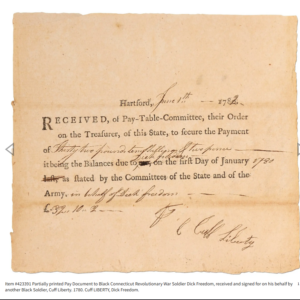 Hartford, June 1st 1782
RECEIVED, of Pay-Table-Committee, their Order
on the Treasurer, of this State, to secure the Payment
of Thirty two pound ten shillings & two pence
Dick freedom
it being the Balances due to on the first Day of January 1781
last, as stated by the Committees of the State and of the
Army, in behalf of Dick freedom
£ 32 10 2
Cuff Liberty
Item #423391 Partially printed Pay Document to Black Connecticut Revolutionary War Soldier Dick Freedom, received and signed for on his behalf by
another Black Soldier, Cuff Liberty, 1780. Cuff LIBERTY, Dick Freedom.